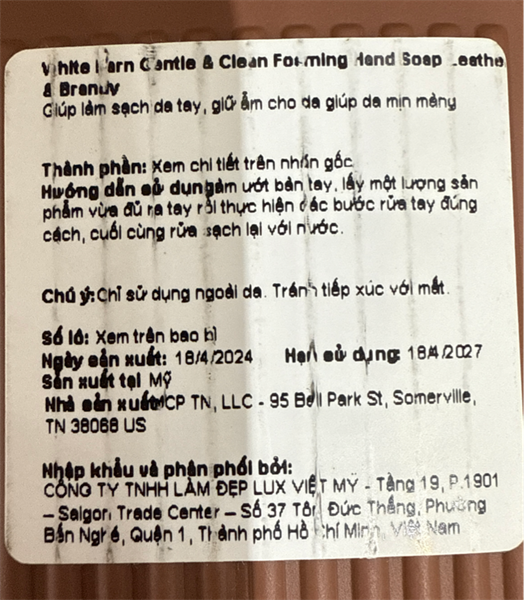 White Barn Gentle & Clean Foaming Hand Soap Leathe
& Brandy
Giúp làm sạch da tay, giữ ẩm cho da giúp da mịn màng
Thành phần: Xem chi tiết trên nhãn gốc
Hướng dẫn sử dụng: Làm ướt bàn tay, lấy một lượng sản
phẩm vừa đủ ra tay rồi thực hiện các bước rửa tay đúng
cách, cuối cùng rửa sạch lại với nước.
Chú ý: Chỉ sử dụng ngoài da. Tránh tiếp xúc với mắt.
Số lô: Xem trên bao bì
Ngày sản xuất: 18/4/2024 Hạn sử dụng: 18/4/2027
Sản xuất tại Mỹ
Nhà sản xuất: MCP TN, LLC - 95 Bell Park St, Somerville,
TN 38068 US
Nhập khẩu và phân phối bởi:
CÔNG TY TNHH LÀM ĐẸP LUX VIỆT MỸ - Tầng 19, P.1901
– Saigon Trade Center – Số 37 Tôn Đức Thắng, Phường
Bến Nghé, Quận 1, Thành phố Hồ Chí Minh, Việt Nam